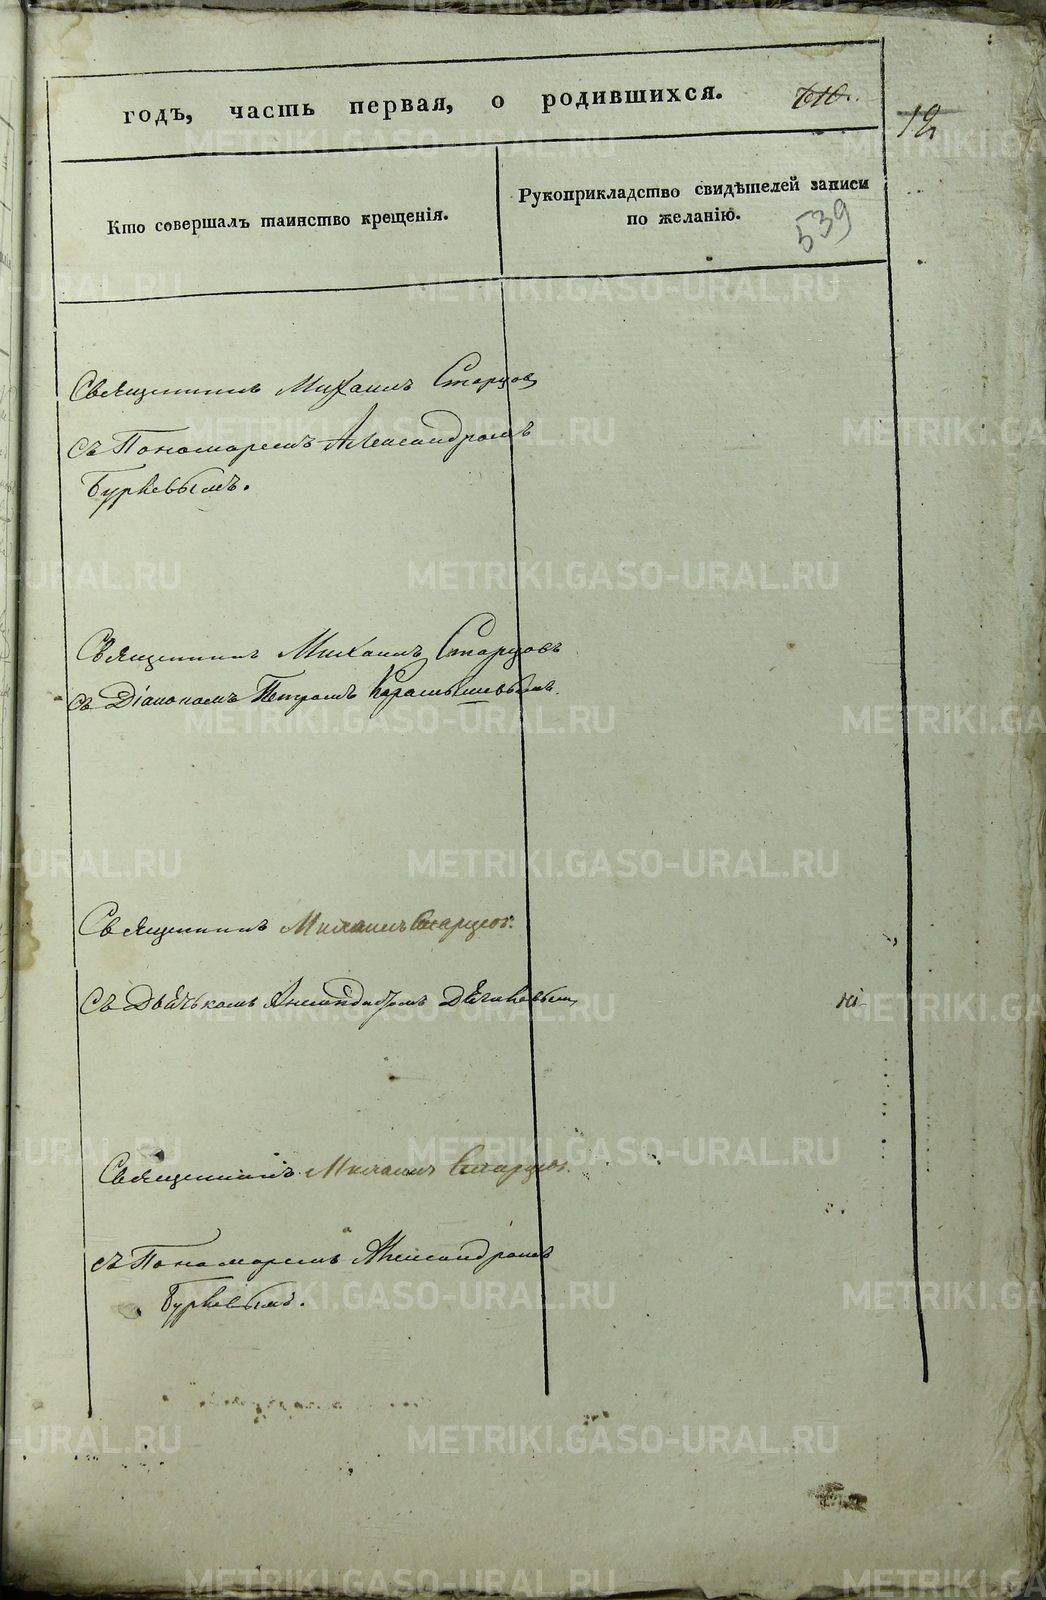 годъ, часть первая, о родившихся.
12
Кто совершалъ таинство крещенія.
Рукоприкладство свидѣтелей записи
по желанію.
539
Священникъ Михаилъ Старцовъ
съ Пономаремъ Александромъ
Буревымъ.
Священникъ Михаилъ Старцовъ
съ Діакономъ Петромъ
Священникъ Михаилъ Старцовъ.
Съ Дьячкомъ
Священникъ Михаилъ Старцовъ.
съ Пономаремъ Александромъ
Буревымъ.
METRIKI.GASO-URAL.RU